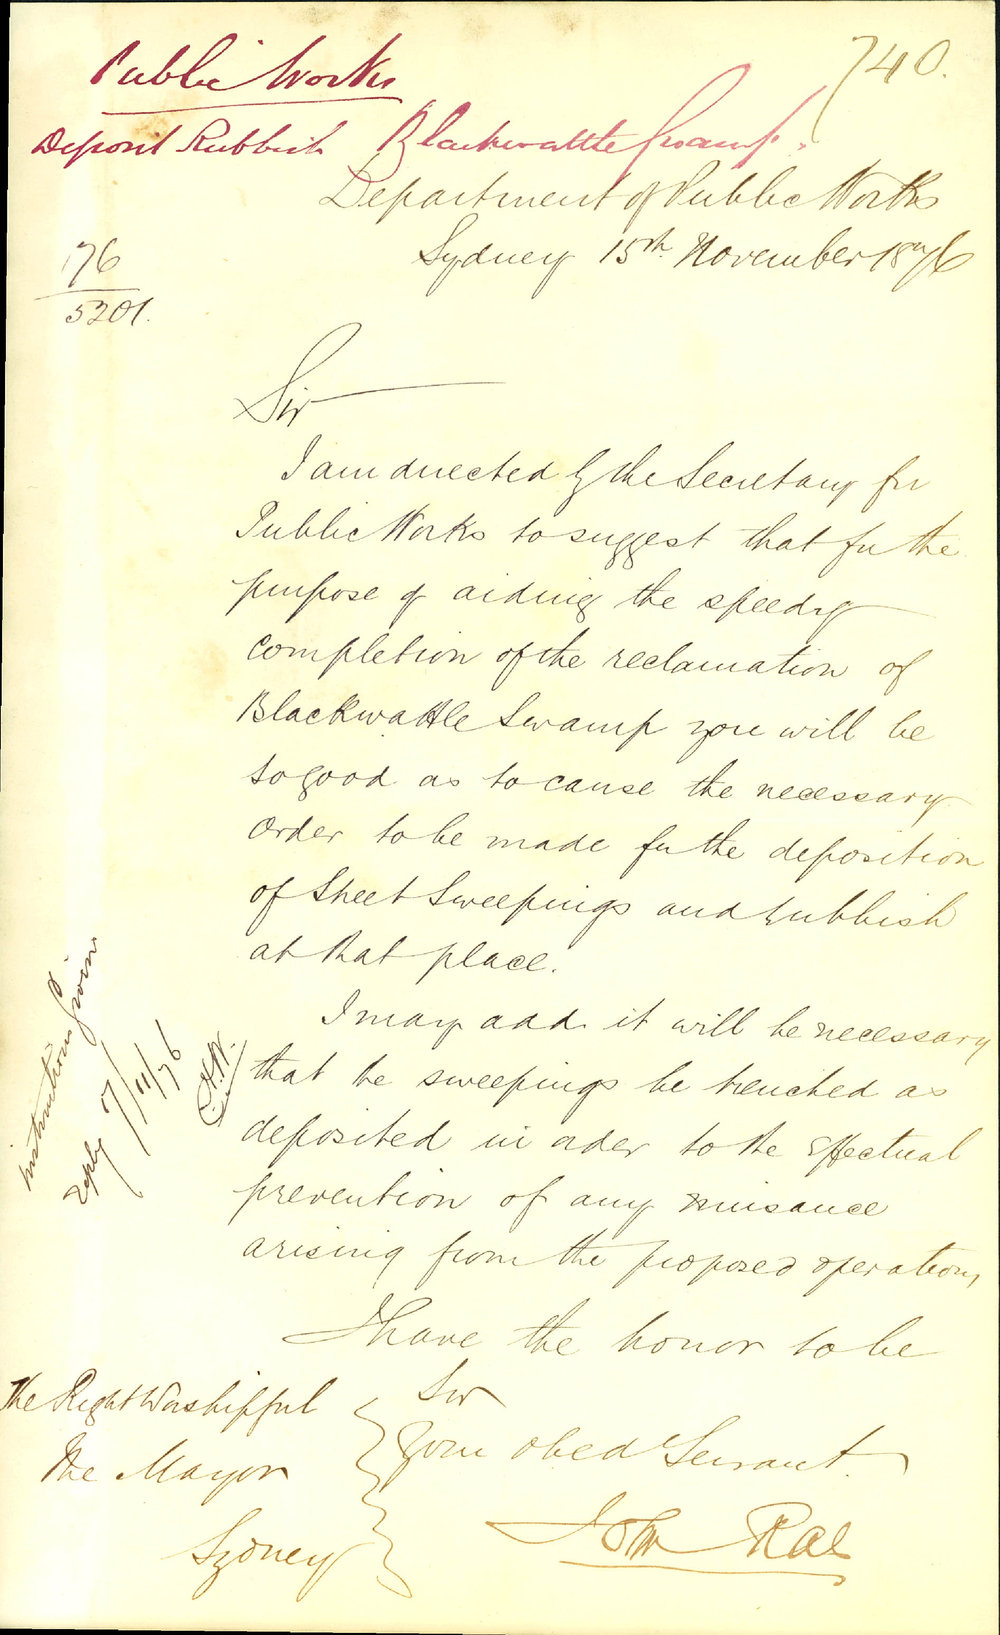 Public Works
740.
Deposit Rubbish Blackwattle Swamp.
Department of Public Works
Sydney 15th November 1876
176
5201.
Sir
I am directed by the Secretary for
Public Works to suggest that for the
purpose of aiding the speedy
completion of the reclamation of
Blackwattle Swamp you will be
so good as to cause the necessary
order to be made for the deposition
of Street Sweepings and rubbish
at that place.
I may add it will be necessary
that the sweepings be trenched as
deposited in order to the effectual
prevention of any nuisance
arising from the proposed operations,
I have the honor to be
Sir
Your obed Servant.
John Rae
The Right Worshipful
the Mayor
Sydney
Instructions given
reply 17/11/76